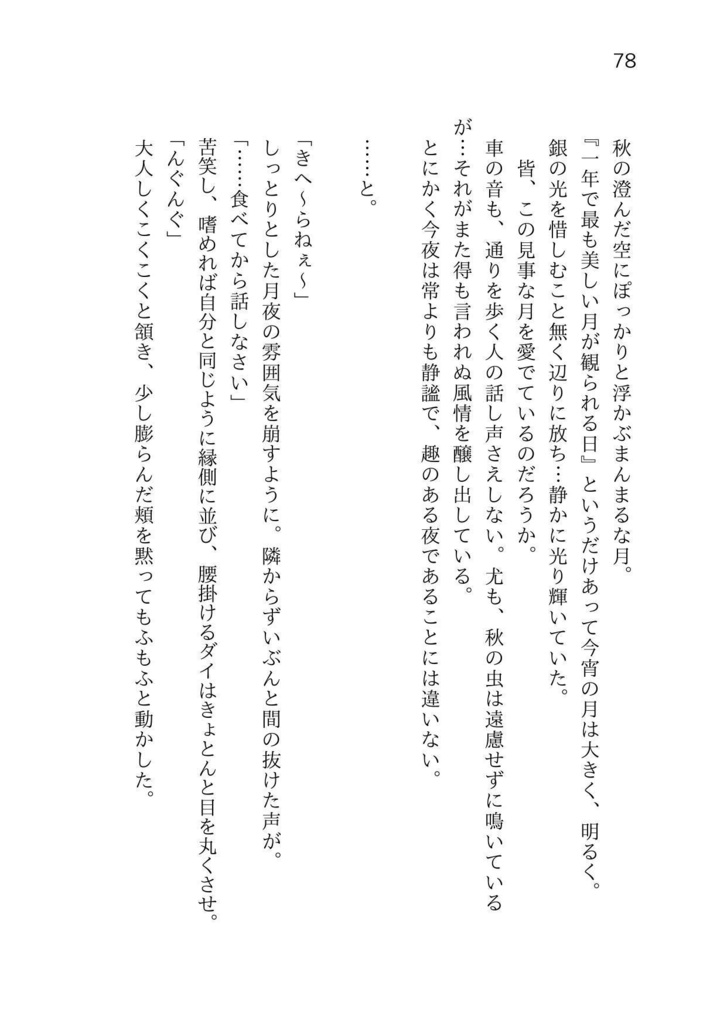 78
秋の澄んだ空にぽっかりと浮かぶまんまるな月。
『一年で最も美しい月が観られる日』というだけあって今宵の月は大きく、明るく。
銀の光を惜しむこと無く辺りに放ち…静かに光り輝いていた。
皆、この見事な月を愛でているのだろうか。
車の音も、通りを歩く人の話し声さえしない。尤も、秋の虫は遠慮せずに鳴いている
が…それがまた得も言われぬ風情を醸し出している。
とにかく今夜は常よりも静謐で、趣のある夜であることには違いない。
……と。
「きへ～らねぇ～」
しっとりとした月夜の雰囲気を崩すように。隣からずいぶんと間の抜けた声が。
「……食べてから話しなさい」
苦笑し、嗜めれば自分と同じように縁側に並び、腰掛けるダイはきょとんと目を丸くさせ。
「んぐんぐ」
大人しくこくこくと頷き、少し膨らんだ頬を黙ってもふもふと動かした。